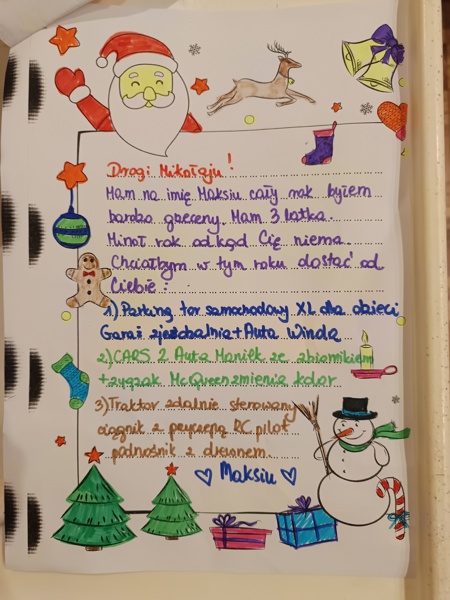 Drogi Mikołaju!
Mam na imię Maksiu cały rok byłem
bardzo grzeczny. Mam 3 latka.
Minął rok odkąd Cię niema.
Chciałbym w tym roku dostać od
Ciebie:
1) Parking tor samochodowy XL dla dzieci
Garaż zjeżdżalnia + Auta Winda
2) CARS 2 Auta Maniek ze zbiornikiem
+ zygzak McQueen zmienia kolor
3) Traktor zdalnie sterowany
ciągnik z przyczepą RC pilot
podnośnik z drewnem.
♡ Maksiu ♡